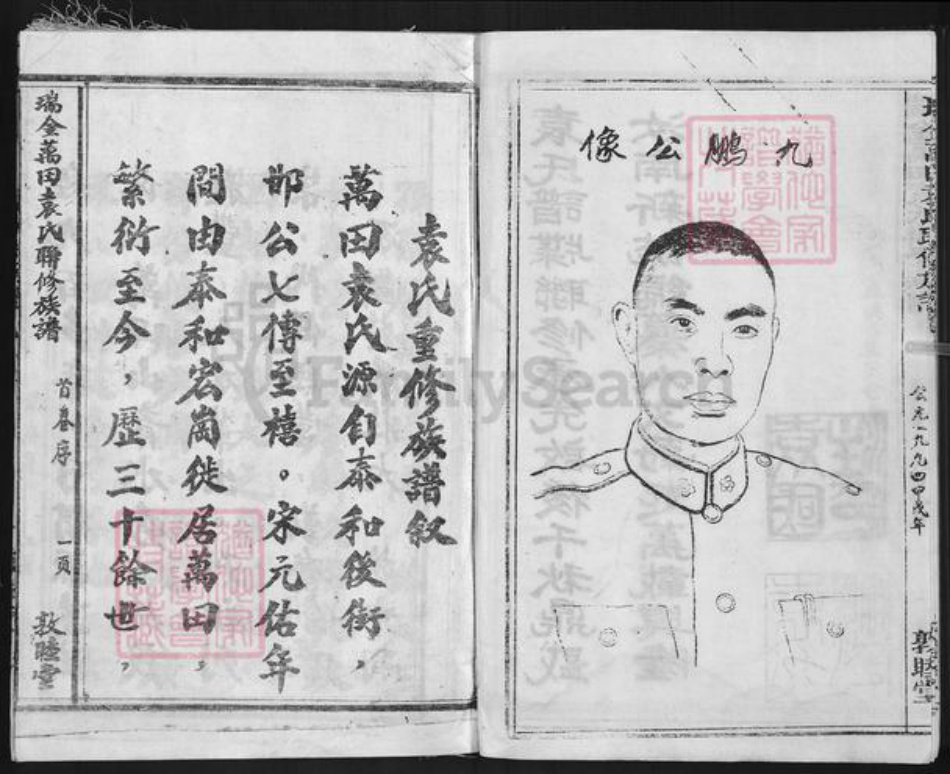 九鵬公像
公元一九九四甲戌年
敦睦堂
袁氏重修族譜叙
萬田袁氏源自泰和後街，
邯公七傳至禧。宋元佑年
間由泰和宏崗徙居萬田，
繁衍至今，歷三十餘世，
瑞金萬田袁氏聯修族譜
首卷序
一頁
敦睦堂
FamilySearch